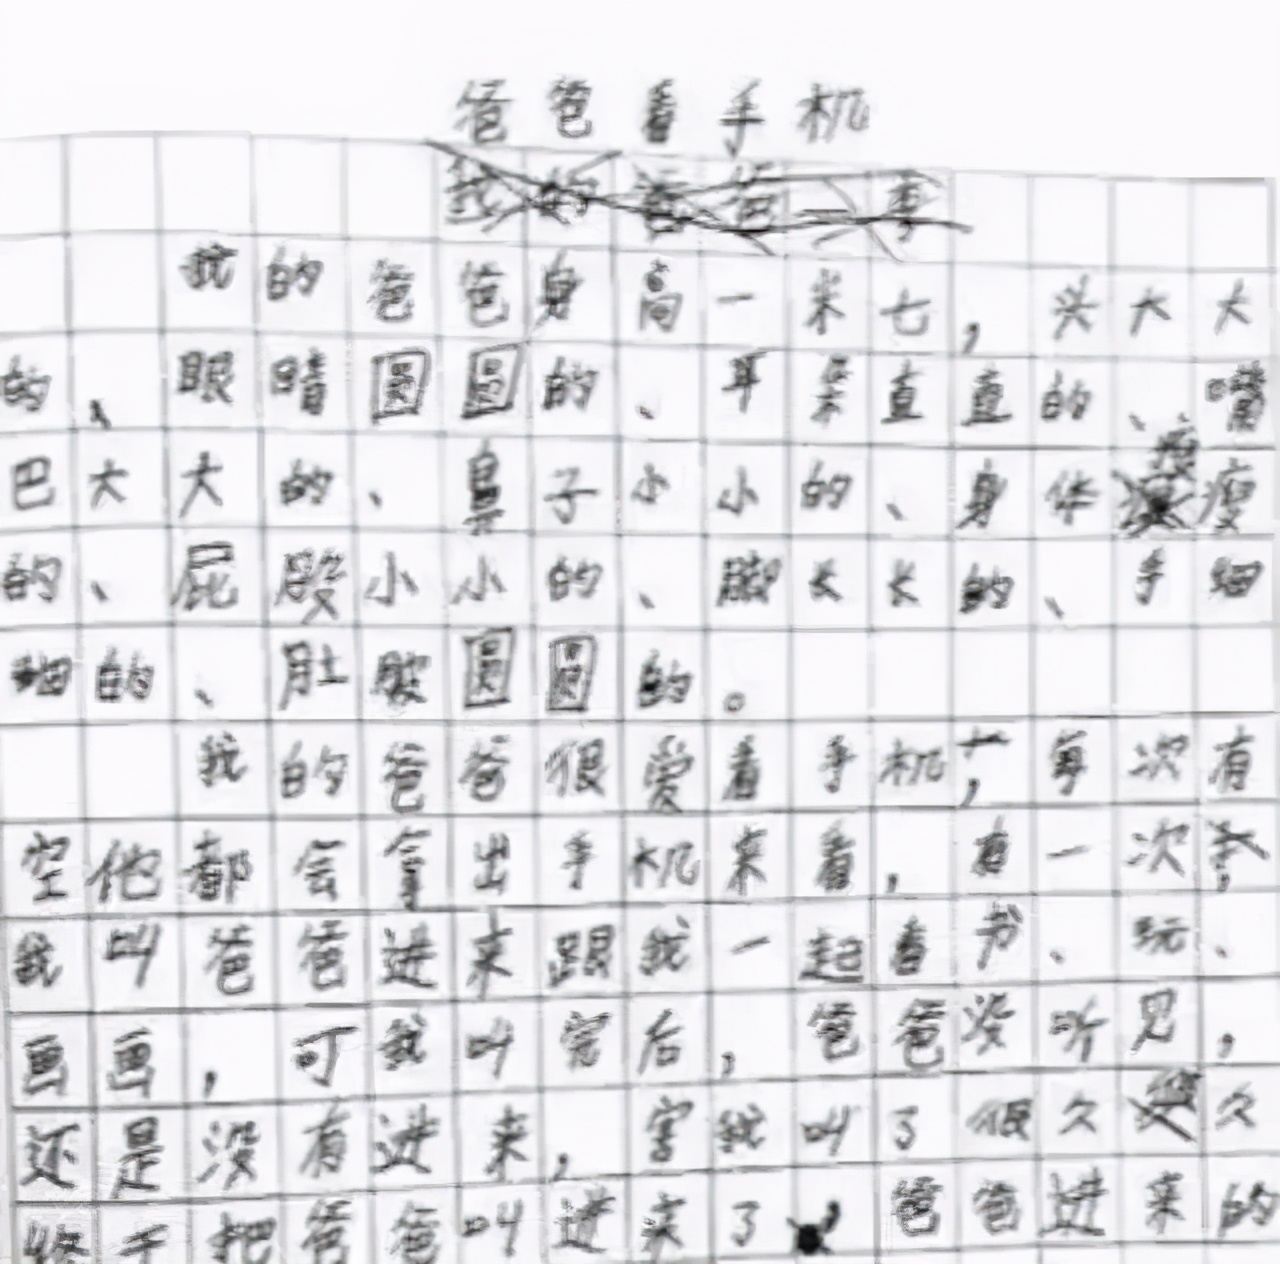 爸爸看手机
我的爸爸一事
我的爸爸身高一米七，头大大
的、眼睛圆圆的、耳朵直直的、嘴
巴大大的、鼻子小小的、身体瘦瘦
的、屁股小小的、脚长长的、手细
细的、肚腹圆圆的。
我的爸爸很爱看手机，每次有
空他都会拿出手机来看，有一次，
我叫爸爸进来跟我一起看书、玩、
画画，可我叫完后，爸爸没听见，
还是没有进来，害我叫了很久久
终于把爸爸叫进来了，爸爸进来的